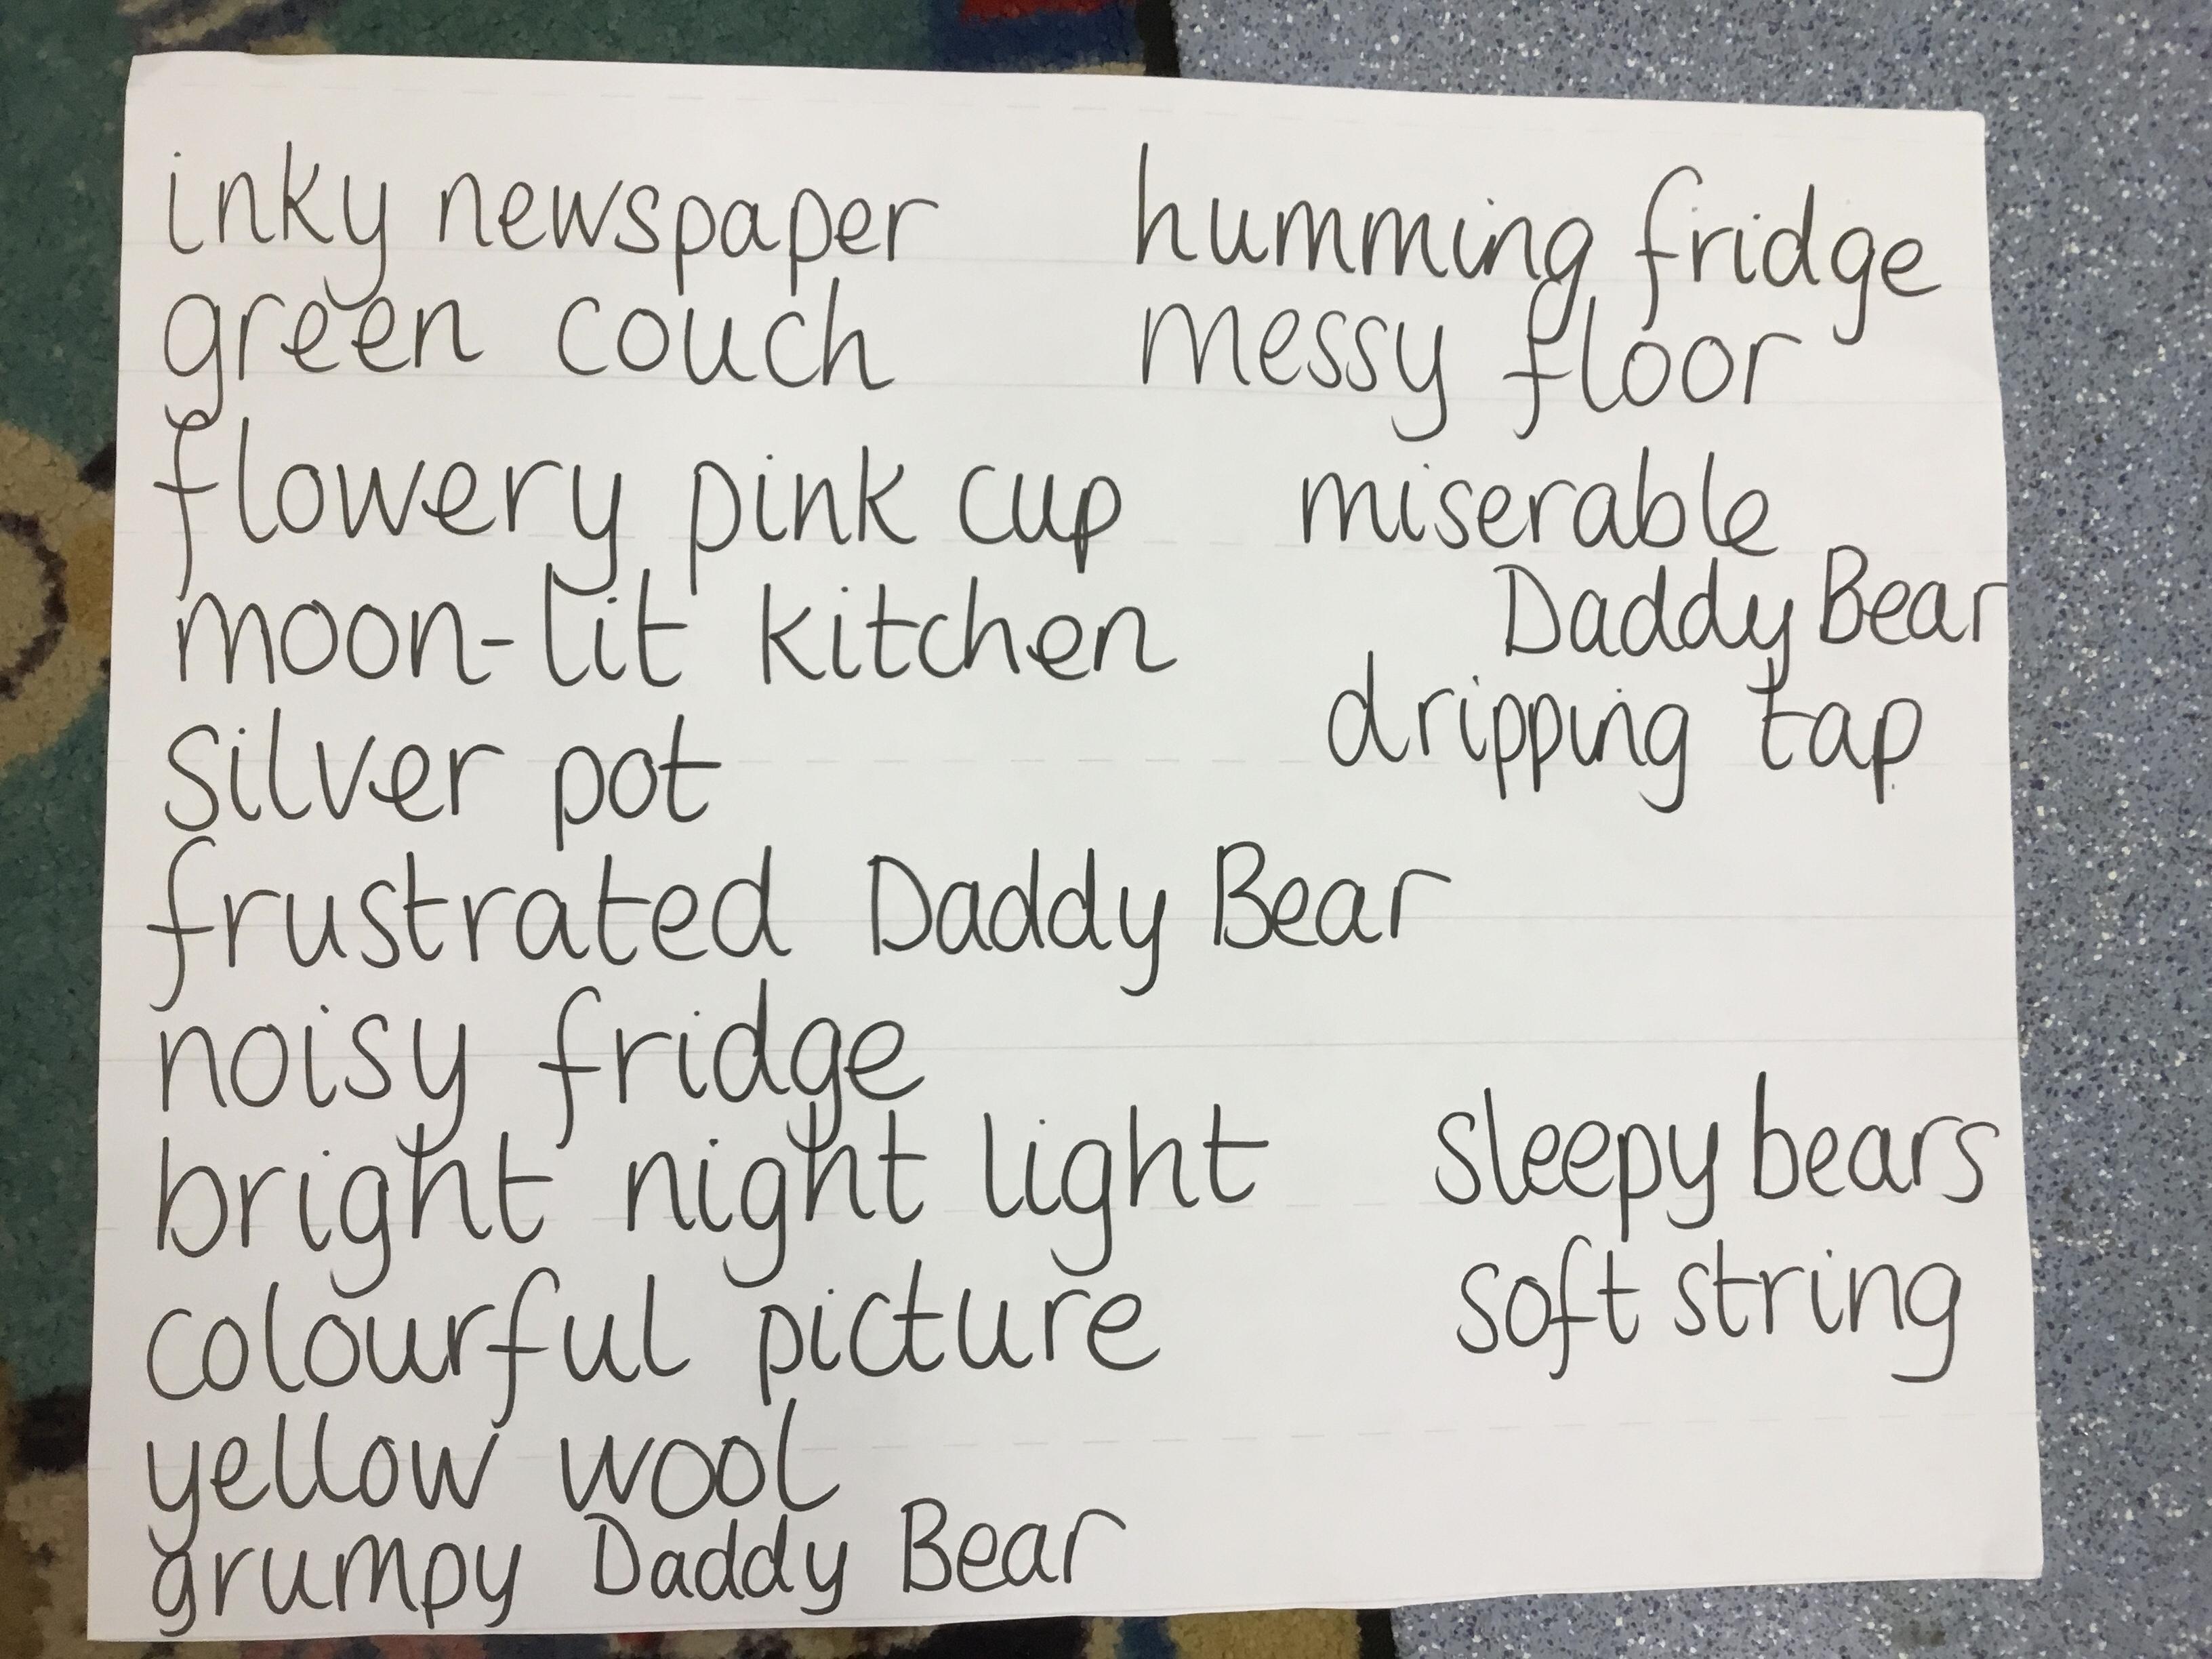 inky newspaper
green couch
flowery pink cup
moon-lit kitchen
silver pot
frustrated Daddy Bear
noisy fridge
bright night light
colourful picture
yellow wool
grumpy Daddy Bear
humming fridge
messy floor
miserable
Daddy Bear
dripping tap
sleepy bears
soft string